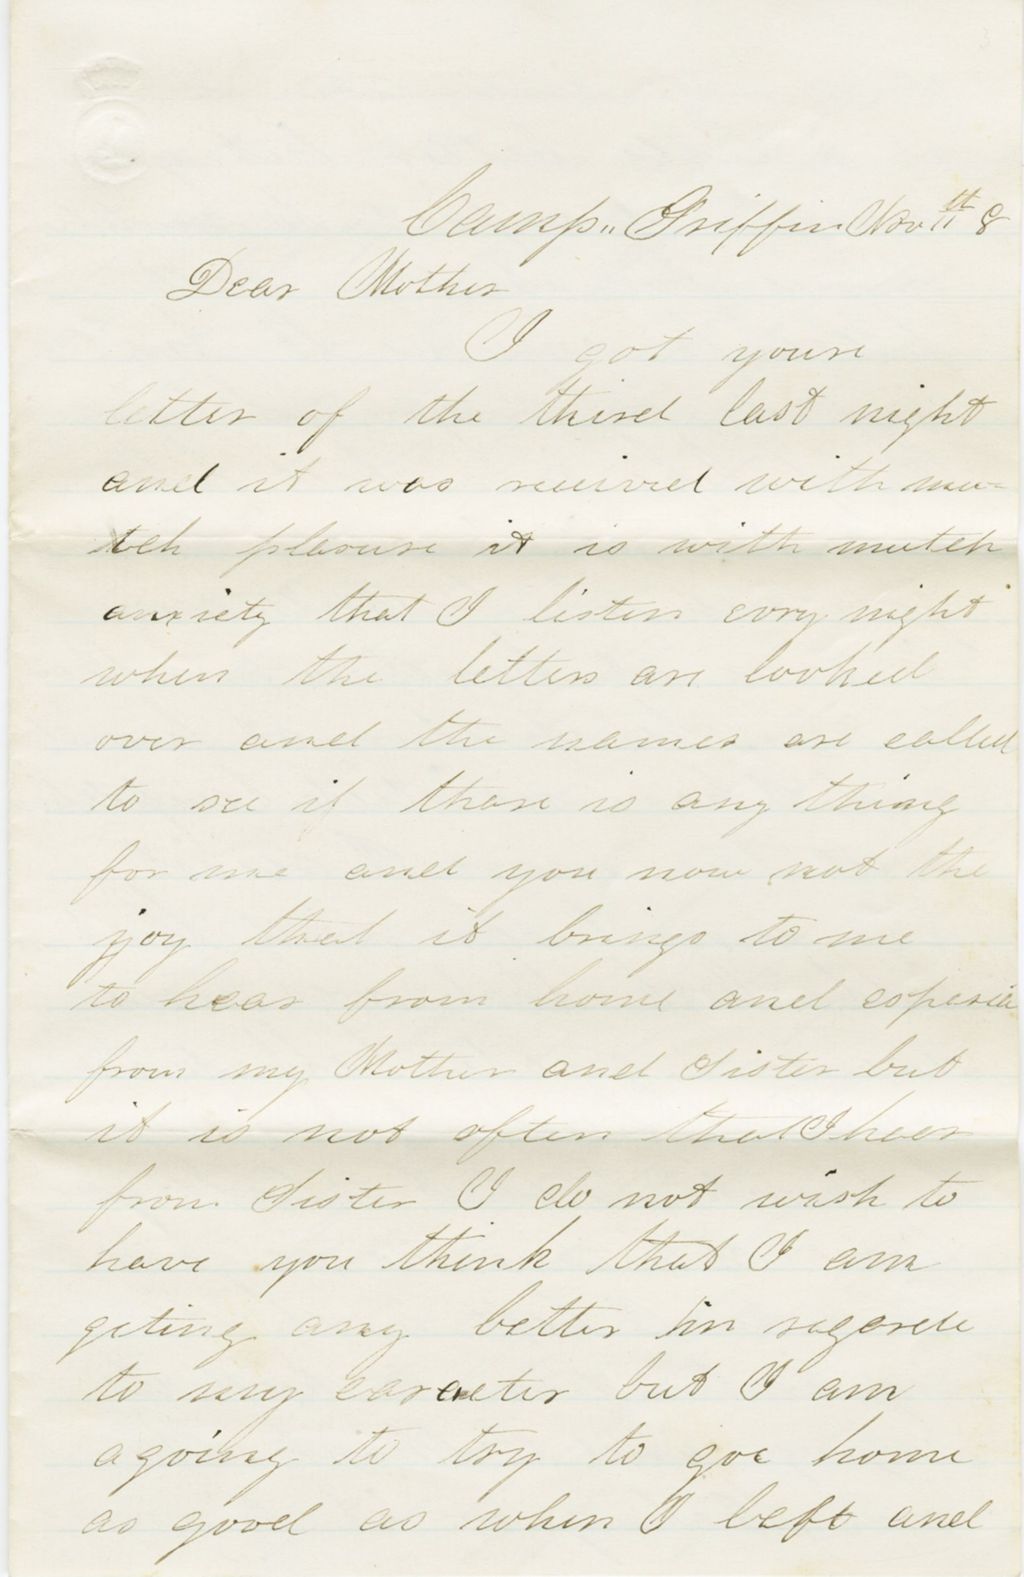 Camp,, Griffin Nov 11th 8
Dear Mother
I got youre
letter of the third last night
and it was reicived with mu-
tch plasure it is with mutch
anxiety that I listen evry night
when the letters are looked
over and the names are called
to see if thare is any thing
for me and you now not the
joy that it brings to me
to hear from home and espesia
from my Mother and Sister but
it is not often that I hear
from Sister I do not wish to
have you think that I am
geting any better in regarde
to my caracter but I am
agoing to try to goe home
as good as when I left and